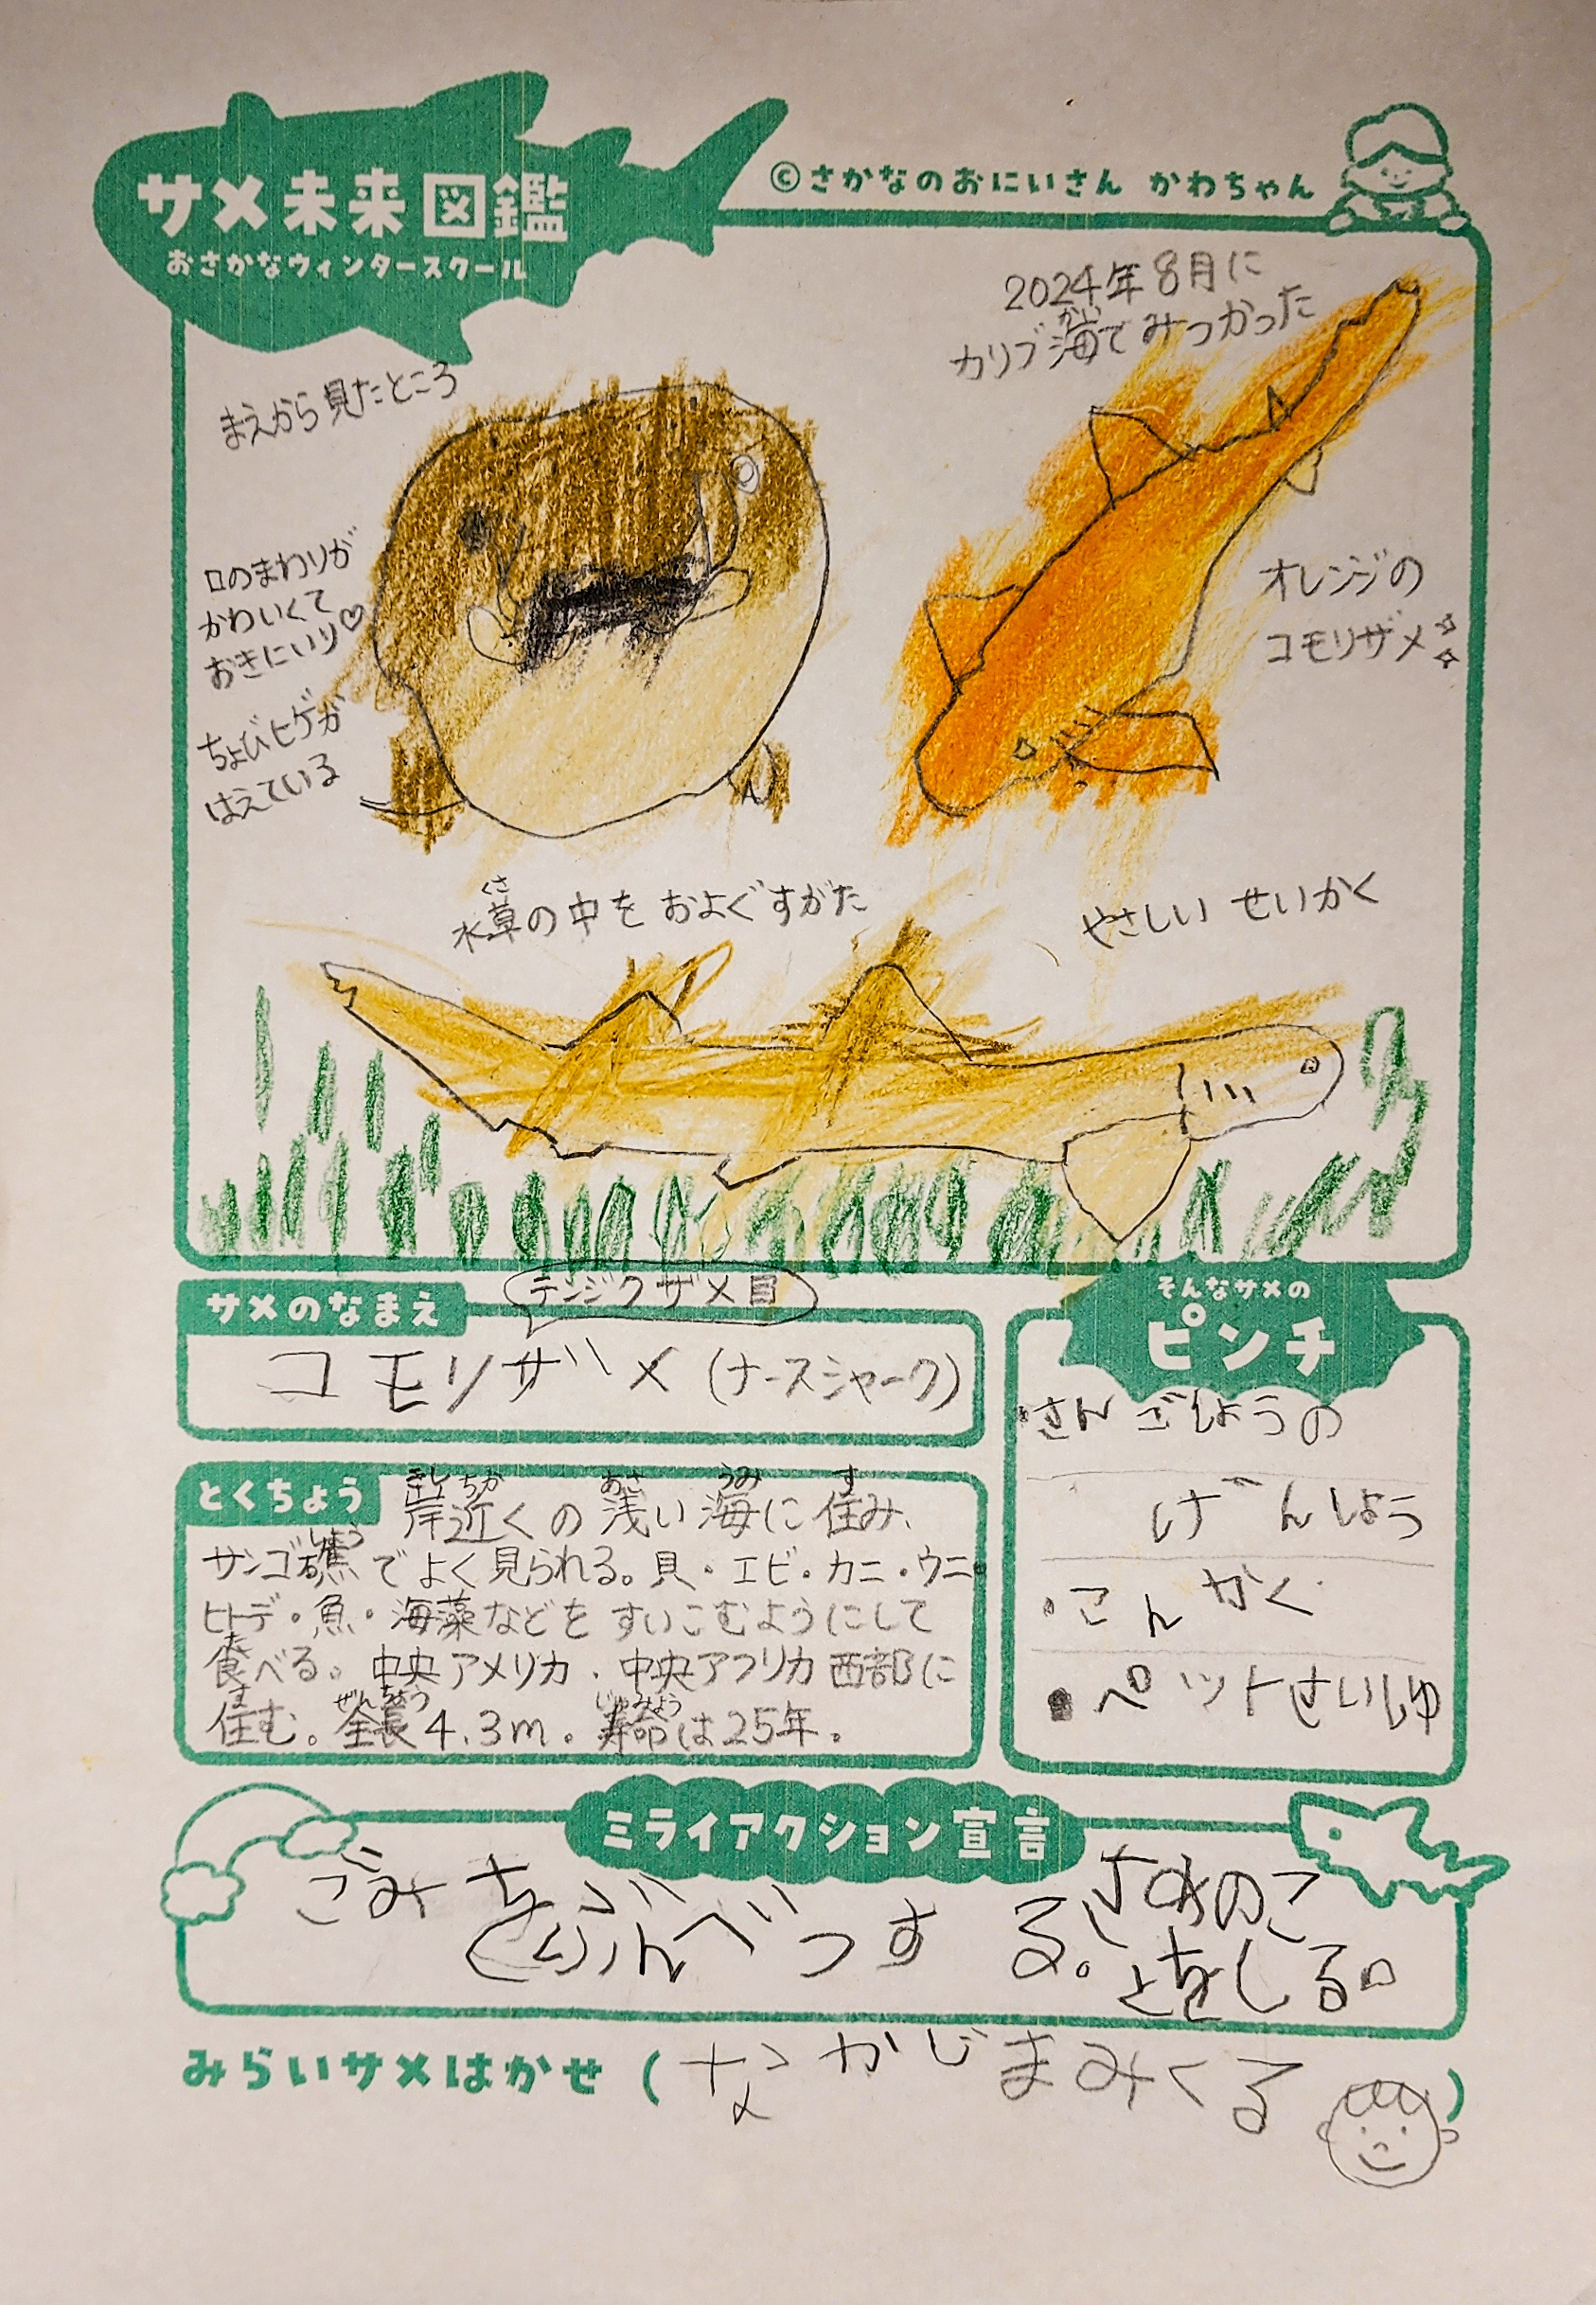 サメ未来図鑑
おさかなウィンタースクール
©さかなのおにいさん かわちゃん
2024年8月に
カリブ海でみつかった
かい
まえから見たところ
口のまわりが
かわいくて
おきにいり♡
ちょびヒゲが
はえている
オレンジの
コモリザメ
くさ
水草の中をおよぐすがた
やさしい せいかく
サメのなまえ
テンジクザメ目
コモリザメ(ナースシャーク)
とくちょう
きし ちか あさ うみ す
岸近くの浅い海に住み、
しょう
サンゴ礁でよく見られる。貝・エビ・カニ・ウニ・
ヒトデ・魚・海藻などをすいこむようにして
た
食べる。中央アメリカ、中央アフリカ西部に
す ぜんちょう じゅみょう
住む。全長4.3m。寿命は25年。
そんなサメの
ピンチ
・さんごしょうの
げんしょう
・こんかく
・ペットさいしゅ
ミライアクション宣言
ごみをぶんべつする。さめのこ
とをしる。
みらいサメはかせ(なかじまみくる)